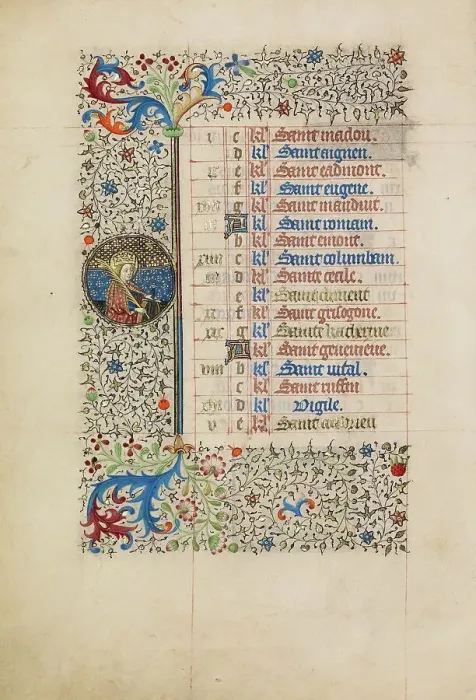 c kl' Saint madou.
d kl' Saint aignen.
e kl' Saint eadmont.
f kl' Saint eugene.
g kl' Saint mauduit.
A kl' Saint romain.
b kl' Saint
xiii c kl' Saint columbam.
d kl' Saincte cecile.
e kl' Saint clement
f kl' Saint grisogone.
g kl' Saincte katherine
A kl' Saint genevieve.
viii b kl' Saint vital.
c kl' Saint ruffin
d kl' Vigile.
v e kl' Saint andrieu